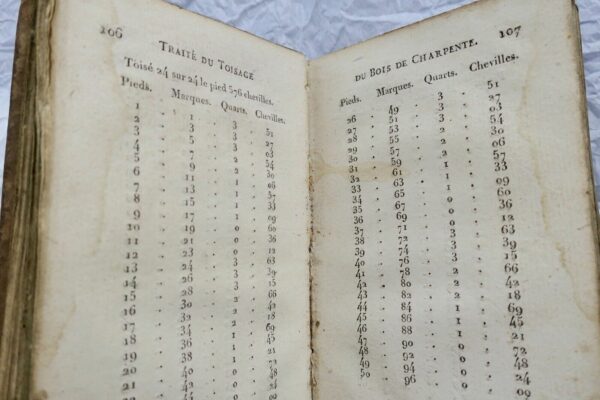 106
TRAITÉ DU TOISAGE
Toisé 24 sur 24 le pied 576 chevilles.
Pieds. Marques. Quarts. Chevilles.
1 . 1 . 3 . 51
2 . 3 . 3 . 27
3 . 5 . 3 . 03
4 . 7 . 2 . 54
5 . 9 . 2 . 30
6 . 11 . 2 . 06
7 . 13 . 1 . 57
8 . 15 . 1 . 33
9 . 17 . 1 . 09
10 . 19 . 0 . 60
11 . 21 . 0 . 36
12 . 23 . 0 . 12
13 . 24 . 3 . 63
14 . 26 . 3 . 39
15 . 28 . 3 . 15
16 . 30 . 2 . 66
17 . 32 . 2 . 42
18 . 34 . 2 . 18
19 . 36 . 1 . 69
20 . 38 . 1 . 45
21 . 40 . 1 . 21
DU BOIS DE CHARPENTE. 107
Pieds. Marques. Quarts. Chevilles.
26 . 49 . 3 . 51
27 . 51 . 3 . 27
28 . 53 . 3 . 03
29 . 55 . 2 . 54
30 . 57 . 2 . 30
31 . 59 . 2 . 06
32 . 61 . 1 . 57
33 . 63 . 1 . 33
34 . 65 . 1 . 09
35 . 67 . 0 . 60
36 . 69 . 0 . 36
37 . 71 . 0 . 12
38 . 72 . 3 . 63
39 . 74 . 3 . 39
40 . 76 . 3 . 15
41 . 78 . 2 . 66
42 . 80 . 2 . 42
43 . 82 . 2 . 18
44 . 84 . 1 . 69
45 . 86 . 1 . 45
46 . 88 . 1 . 21
47 . 90 . 0 . 72
48 . 92 . 0 . 48
49 . 94 . 0 . 24
50 . 96 . 0